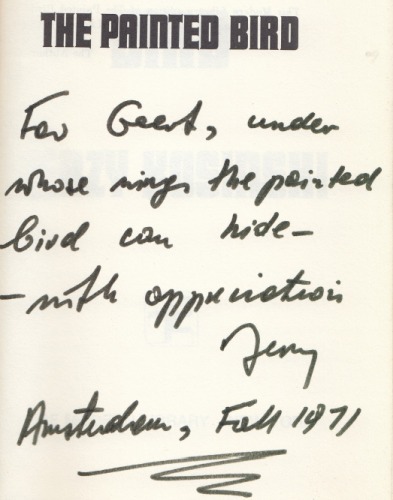 THE PAINTED BIRD
For Geert, under
whose wings the painted
bird can hide —
— with appreciation
Jerzy
Amsterdam, Fall 1971